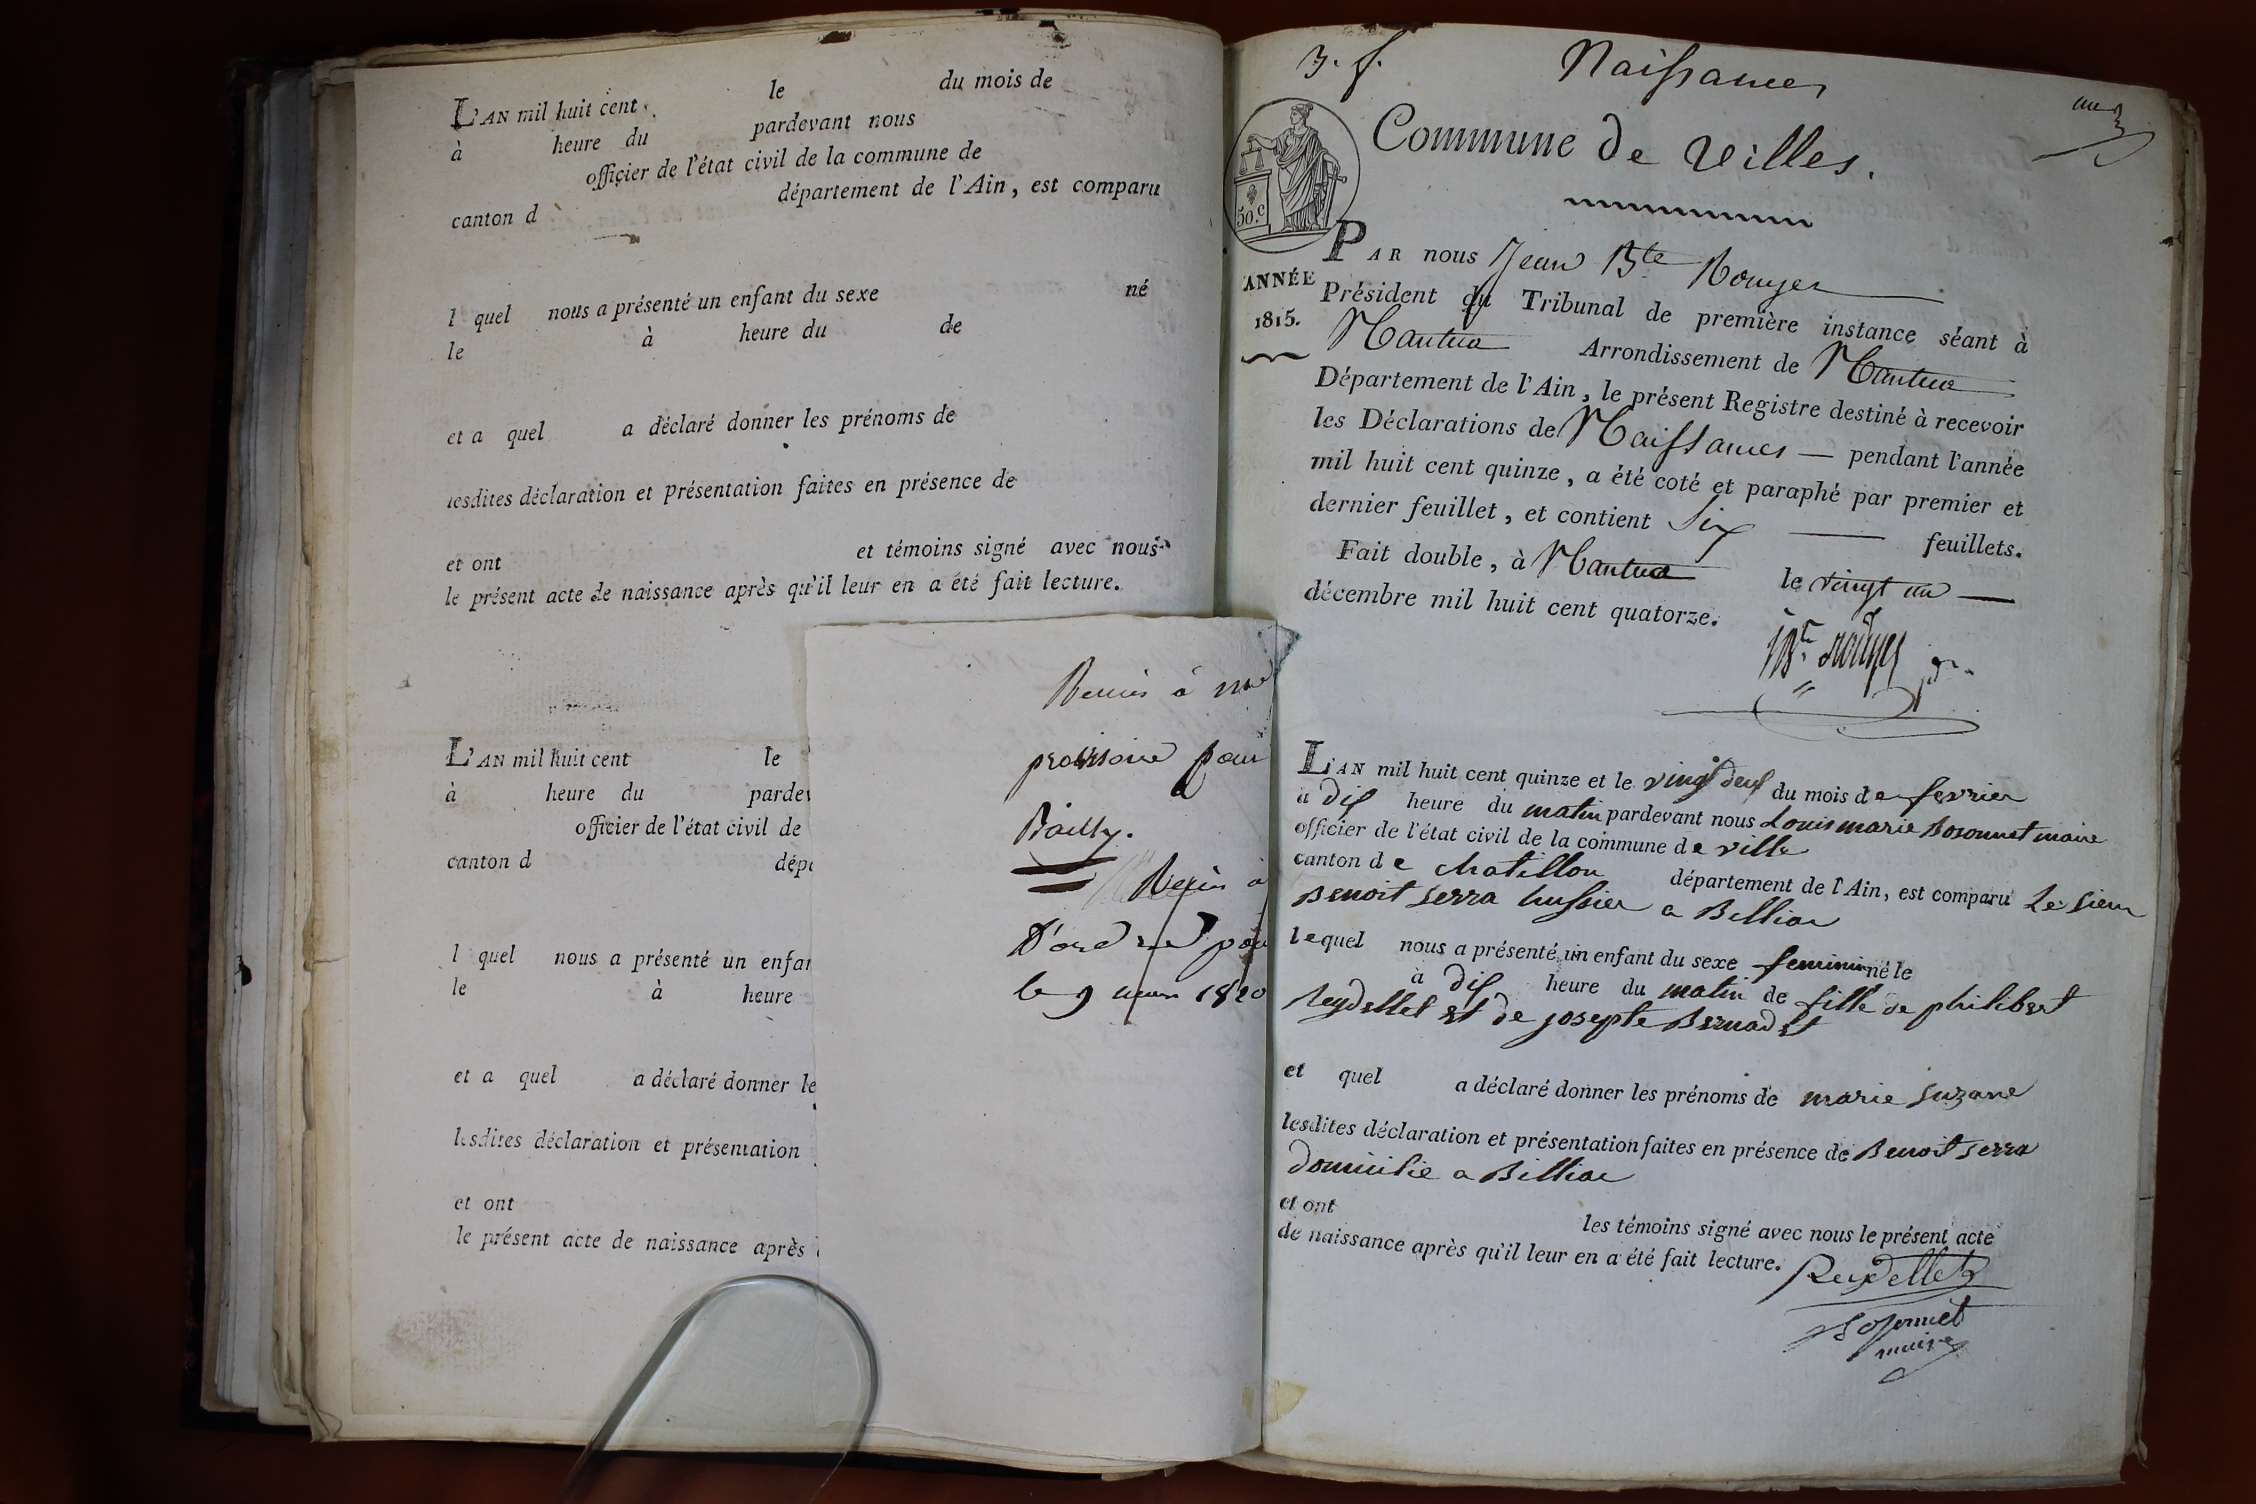 L'AN mil huit cent le du mois de
à heure du pardevant nous
officier de l'état civil de la commune de
canton d département de l'Ain, est comparu
l quel nous a présenté un enfant du sexe né
le à heure du de
et a quel a déclaré donner les prénoms de
lesdites déclaration et présentation faites en présence de
et ont et témoins signé avec nous
le présent acte de naissance après qu'il leur en a été fait lecture.
L'AN mil huit cent le
à heure du pardev
officier de l'état civil de
canton d dépa
l quel nous a présenté un enfan
le à heure
et a quel a déclaré donner le
lesdites déclaration et présentation
et ont
le présent acte de naissance après
à
provisoire pour
Bailly.
D'ordre pou
le 9 1820
Naissances
Commune de Villes.
50.c
ANNÉE
1815.
PAR nous Jean Bte Rouyer
Président du Tribunal de première instance séant à
Nantua Arrondissement de Nantua
Département de l'Ain, le présent Registre destiné à recevoir
les Déclarations de Naissances — pendant l'année
mil huit cent quinze, a été coté et paraphé par premier et
dernier feuillet, et contient Six — feuillets.
Fait double, à Nantua le vingt un —
décembre mil huit cent quatorze.
L'AN mil huit cent quinze et le vingt deux du mois de fevrier
à dix heure du matin pardevant nous Louis marie Bosonnet maire
officier de l'état civil de la commune de ville
canton de chatillon département de l'Ain, est comparu Le sieur
Benoit serra hussier a Billiac
lequel nous a présenté un enfant du sexe feminin né le
à dix heure du matin de fille de philibert
Reydellet et de josepte Bernadet
et quel a déclaré donner les prénoms de marie suzane
lesdites déclaration et présentation faites en présence de Benoit serra
domicilie a Billiac
et ont les témoins signé avec nous le présent acte
de naissance après qu'il leur en a été fait lecture.
Reydellet
Bosonnet
maire